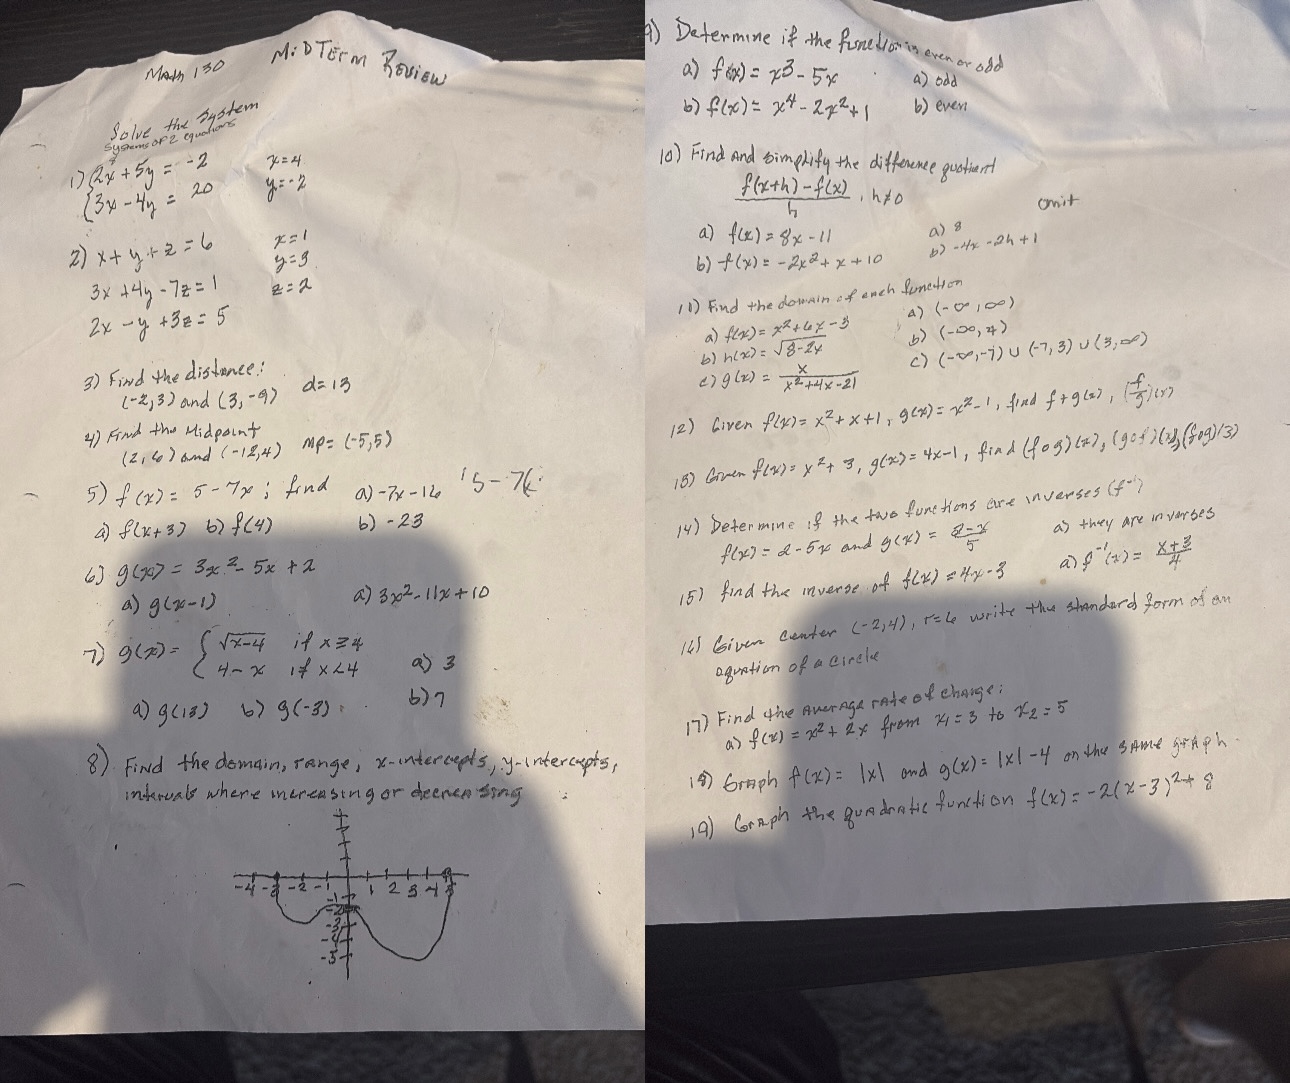 Math 130 MIDTerm Review
Solve the system
systems of 2 equations
1) { 2x + 5y = -2 x = 4
{ 3x - 4y = 20 y = -2
2) x + y + z = 6 x = 1
3x + 4y - 7z = 1 y = 3
2x - y + 3z = 5 z = 2
3) Find the distance:
(-2,3) and (3,-9) d = 13
4) Find the Midpoint
(2,6) and (-12,4) mp = (-5,5)
5) f(x) = 5 - 7x ; find a) -7x - 16 5 - 7(
a) f(x+3) b) f(4) b) -23
6) g(x) = 3x² - 5x + 2
a) g(x-1) a) 3x² - 11x + 10
7) g(x) = { √x-4 if x ≥ 4
{ 4 - x if x < 4 a) 3
a) g(13) b) g(-3) b) 7
8) Find the domain, range, x-intercepts, y-intercepts,
intervals where increasing or decreasing
-4 -3 -2 -1 1 2 3 4 5
-1
-2
-3
-4
-5
9) Determine if the function is even or odd
a) f(x) = x³ - 5x a) odd
b) f(x) = x⁴ - 2x² + 1 b) even
10) Find and simplify the difference quotient
f(x+h) - f(x) / h , h ≠ 0 omit
a) f(x) = 8x - 11 a) 8
b) f(x) = -2x² + x + 10 b) -4x - 2h + 1
11) Find the domain of each function
a) f(x) = x² + 6x - 3 a) (-∞, ∞)
b) h(x) = √8-2x b) (-∞, 4)
c) g(x) = x / x² + 4x - 21 c) (-∞, -7) ∪ (-7, 3) ∪ (3, ∞)
12) Given f(x) = x² + x + 1, g(x) = x² - 1, find f + g(x), (f/g)(x)
13) Given f(x) = x² + 3, g(x) = 4x - 1, find (fog)(x), (gof)(x), (fog)(3)
14) Determine if the two functions are inverses (f⁻¹)
f(x) = 2 - 5x and g(x) = 2-x / 5 a) they are inverses
15) find the inverse of f(x) = 4x - 3 a) f⁻¹(x) = x+3 / 4
16) Given center (-2,4), r = 6 write the standard form of an
equation of a circle
17) Find the Average rate of change:
a) f(x) = x² + 2x from x₁ = 3 to x₂ = 5
18) Graph f(x) = |x| and g(x) = |x| - 4 on the same graph.
19) Graph the quadratic function f(x) = -2(x-3)² + 8